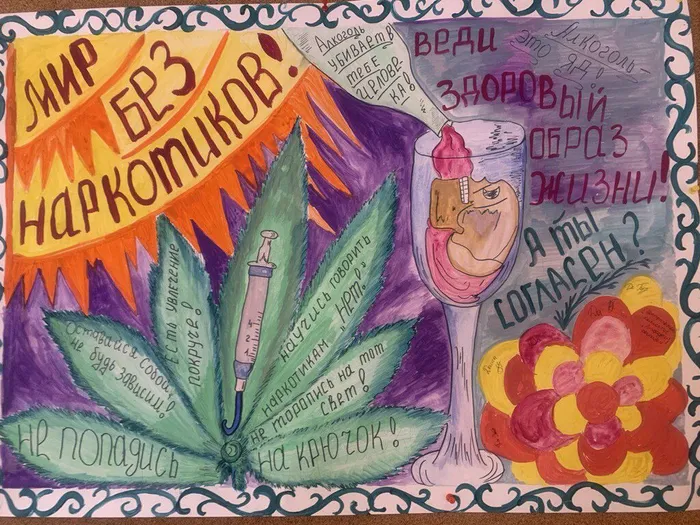 МИР
БЕЗ
НАРКОТИКОВ!
Алкоголь
убивает в
тебе
челове-
ка!
ВЕДИ
ЗДОРОВЫЙ
ОБРАЗ
ЖИЗНИ!
Алкоголь-
это яд!
А ТЫ
СОГЛАСЕН?
Оставайся собой,
не будь зависим!
Есть увлечение
покруче!
Научись говорить
наркотикам „НЕТ!"
Не торопись на тот
свет!
Не попадись
на крючок!